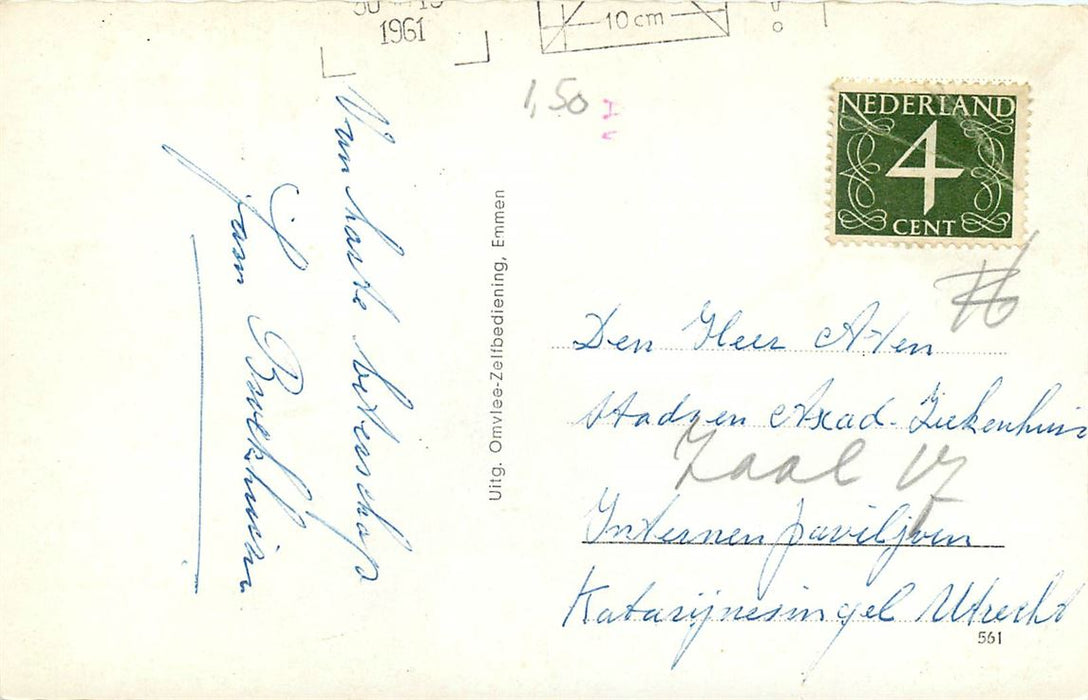 1961
10 cm
1,50
NEDERLAND
4
CENT
Van harte beterschap
fam Broekhuizen
Uitg. Omvlee-Zelfbediening, Emmen
Den Heer Aten
Stads en Acad. Ziekenhuis
Zaal 17
Internen paviljoen
Katarijnesingel Utrecht
561